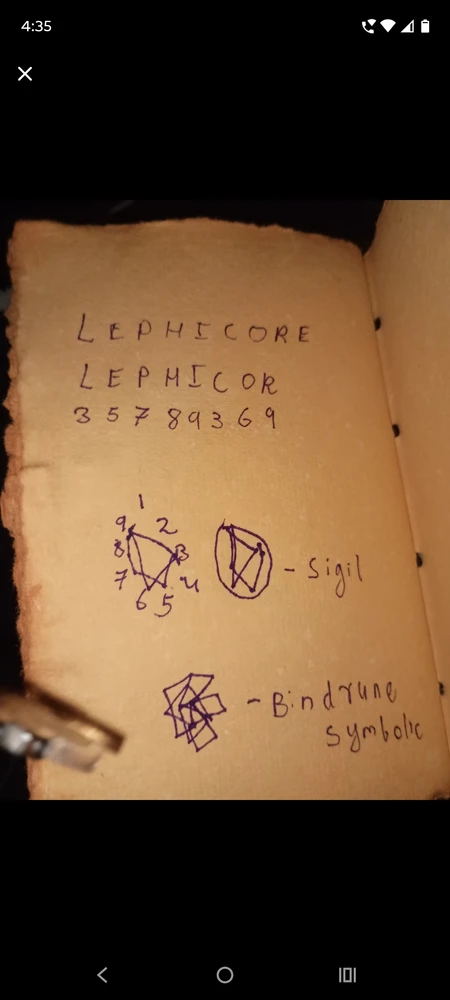 4:35
LEPHICORE
LEPHICOR
3 5 7 8 9 3 6 9
1
9 2
8 3
7 4
6 5
- Sigil
- Bindrune
symbolic